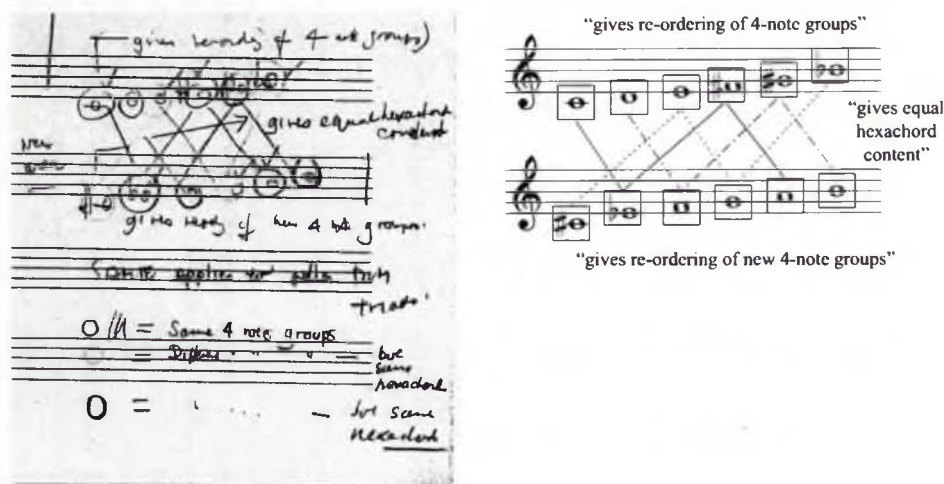 gives reordering of 4 note groups)
gives equal hexachord
content
New
gives of new 4 note groups.
Same applies for
O/// = Same 4 note groups
O = Different " " " — but
same
hexachord
O = ' . . . . — but same
hexachord
“gives re-ordering of 4-note groups”
“gives equal
hexachord
content”
“gives re-ordering of new 4-note groups”